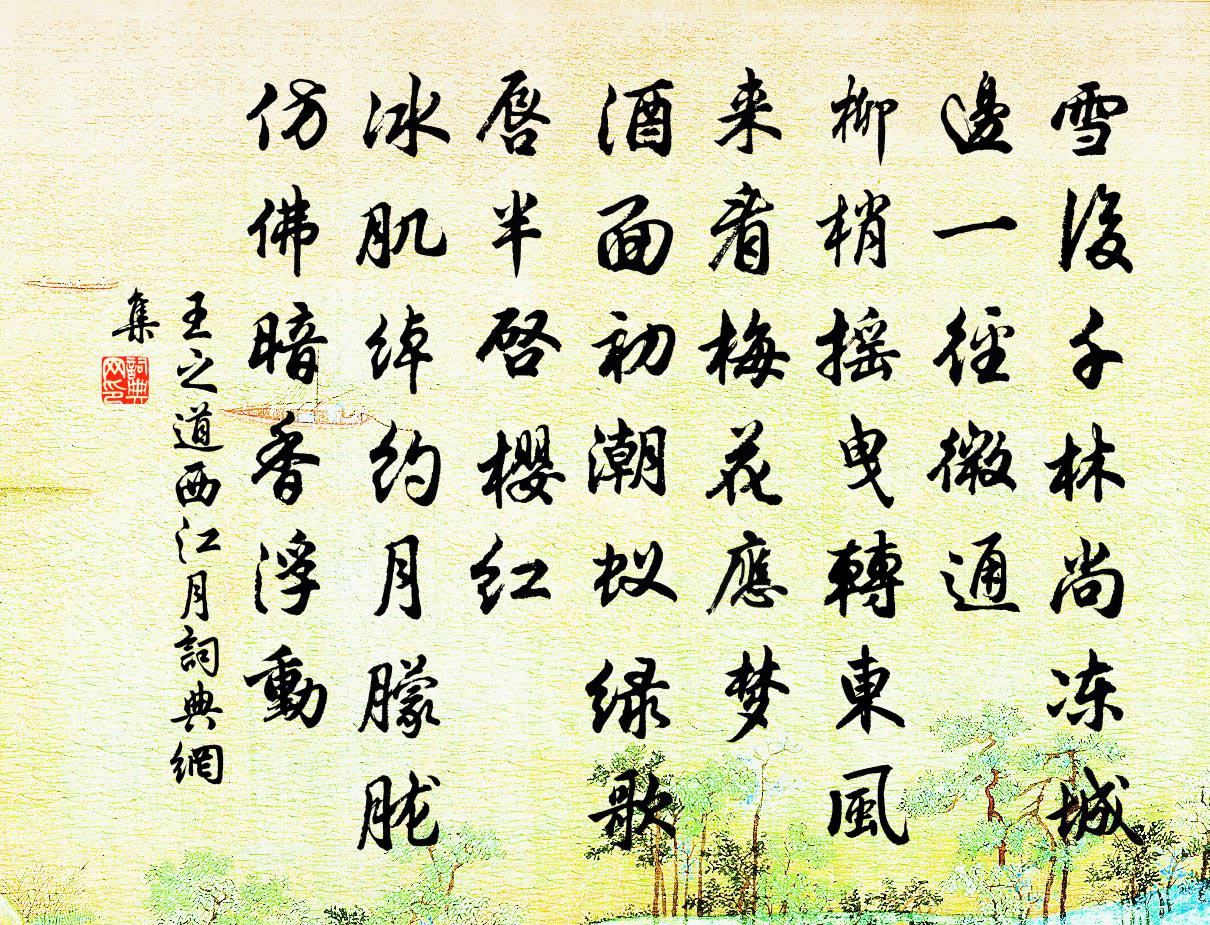 雪後千林尚冻城
邊一徑微通
柳梢摇曳轉東風
来看梅花應梦
酒面初潮蚁绿歌
唇半启櫻红
冰肌绰约月朦胧
仿佛暗香浮動
王之道西江月詞典網
集
詞典
网印